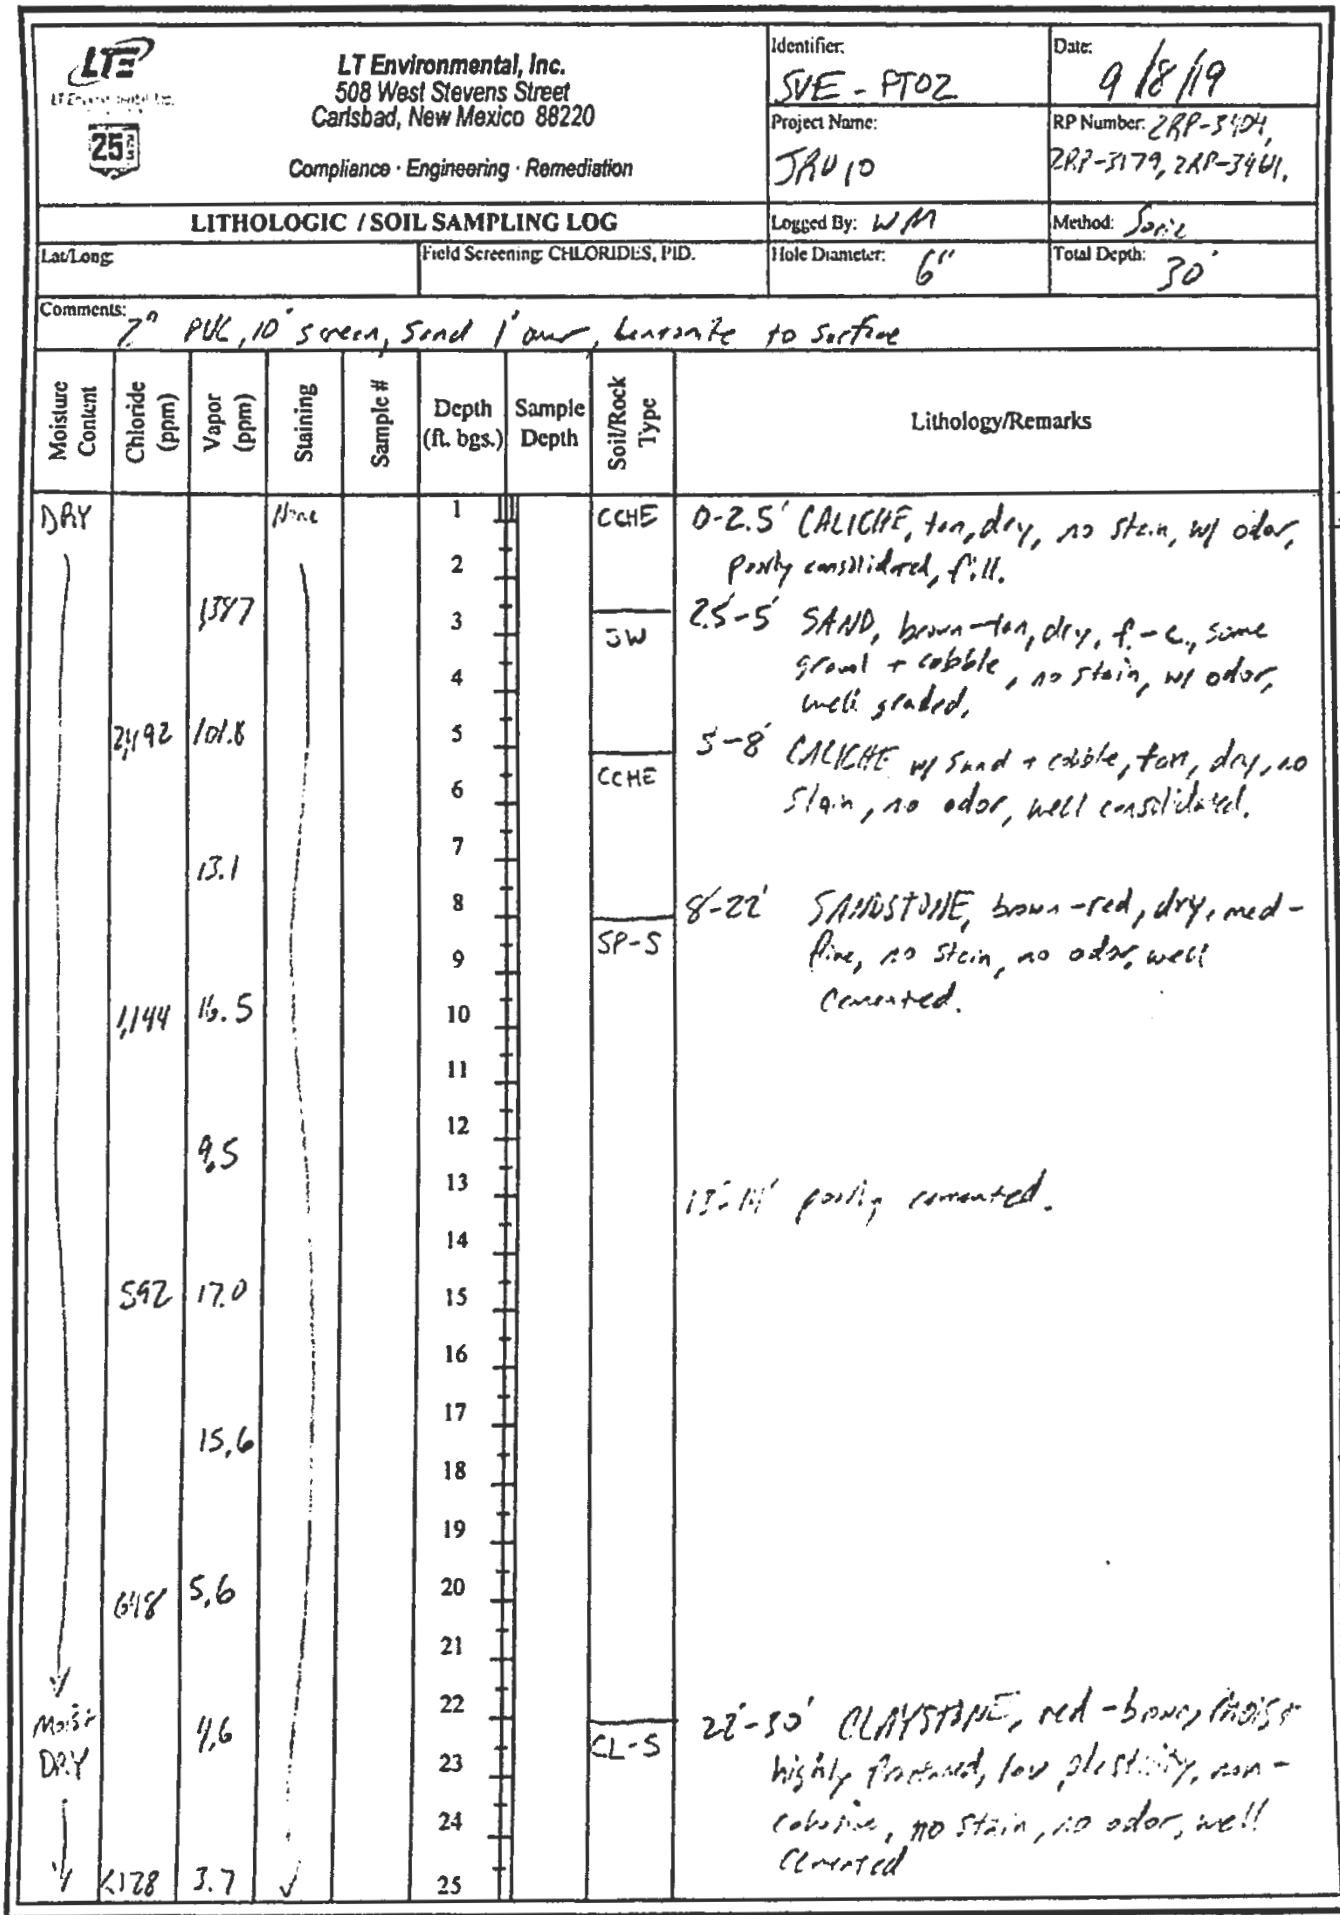 LTE
LT Environmental, Inc.
25
LT Environmental, Inc.
508 West Stevens Street
Carlsbad, New Mexico 88220
Compliance · Engineering · Remediation
Identifier:
SVE - PT02
Date:
9/8/19
Project Name:
JRU 10
RP Number: 2RP-3404,
2RP-3179, 2RP-3461.
LITHOLOGIC / SOIL SAMPLING LOG
Logged By: WM
Method: Sonic
Lat/Long:
Field Screening: CHLORIDES, PID.
Hole Diameter: 6"
Total Depth: 30'
Comments:
2" PVC, 10' screen, sand 1' over, bentonite to surface
Moisture Content
Chloride (ppm)
Vapor (ppm)
Staining
Sample #
Depth (ft. bgs.)
Sample Depth
Soil/Rock Type
Lithology/Remarks
DRY None 1 CCHE 0-2.5' CALICHE, tan, dry, no stain, w/ odor,
2 poorly consolidated, fill.
1,387 3 SW 2.5-5' SAND, brown-tan, dry, f.-c., some
4 gravel + cobble, no stain, w/ odor,
well graded,
2,492 101.8 5 5-8' CALICHE w/ sand + cobble, tan, dry, no
6 CCHE stain, no odor, well consolidated.
13.1 7
8 8-22' SANDSTONE, brown-red, dry, med-
9 SP-S fine, no stain, no odor, well
1,144 16.5 10 cemented.
11
9.5 12
13 13-14' poorly cemented.
14
592 17.0 15
16
17
15.6 18
19
648 5.6 20
21
22
Moist 4.6 CL-S 22'-30' CLAYSTONE, red-brown, moist
DRY 23 highly fractured, low plasticity, non-
24 cohesive, no stain, no odor, well
<128 3.7 25 cemented